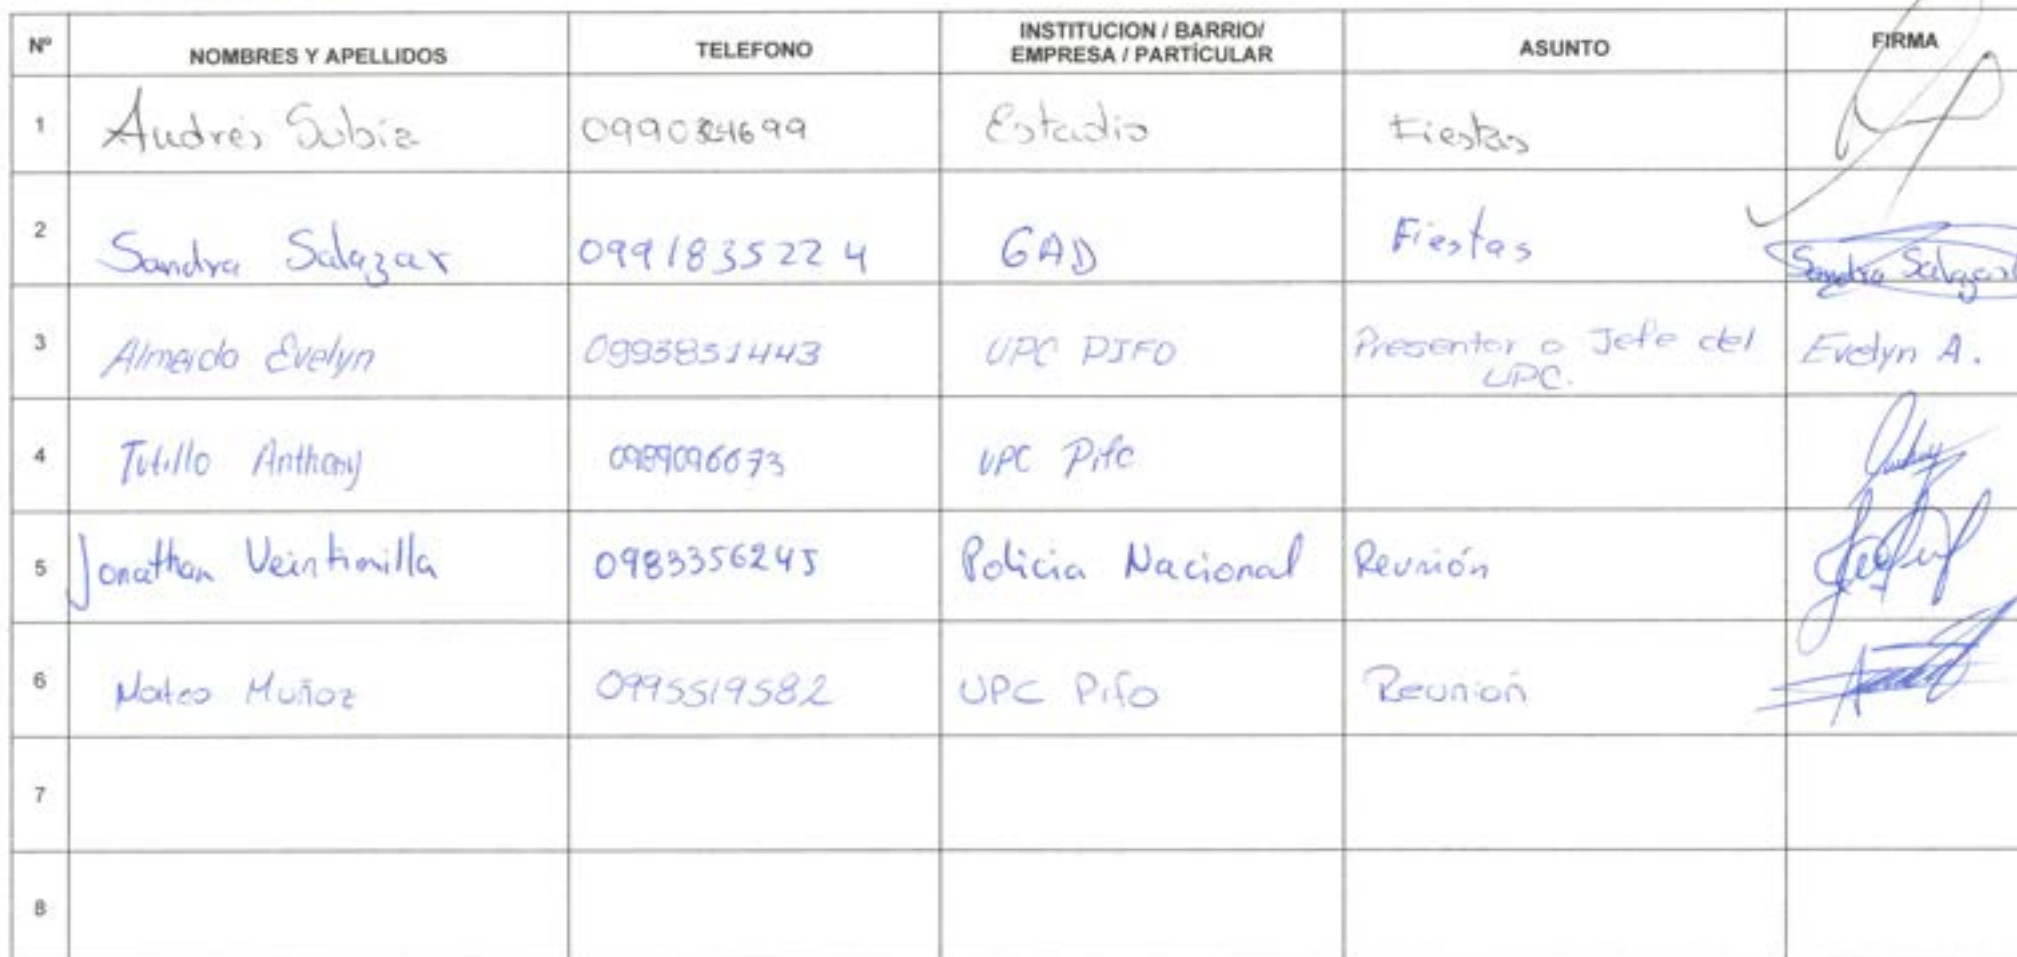 Nº NOMBRES Y APELLIDOS TELEFONO INSTITUCION / BARRIO/ EMPRESA / PARTÍCULAR ASUNTO FIRMA
1 Andrés Subía Estadio Fiestas
2 Sandra Salazar 0991835224 GAD Fiestas Sandra Salazar
3 Almeida Evelyn 0993851443 UPC PIFO Presentar a Jefe del UPC. Evelyn A.
4 Tutillo Anthony 0989096673 UPC Pifo
5 Jonathan Veintimilla 0983356245 Policia Nacional Reunión
6 Mateo Muñoz 0995519582 UPC Pifo Reunión
7
8